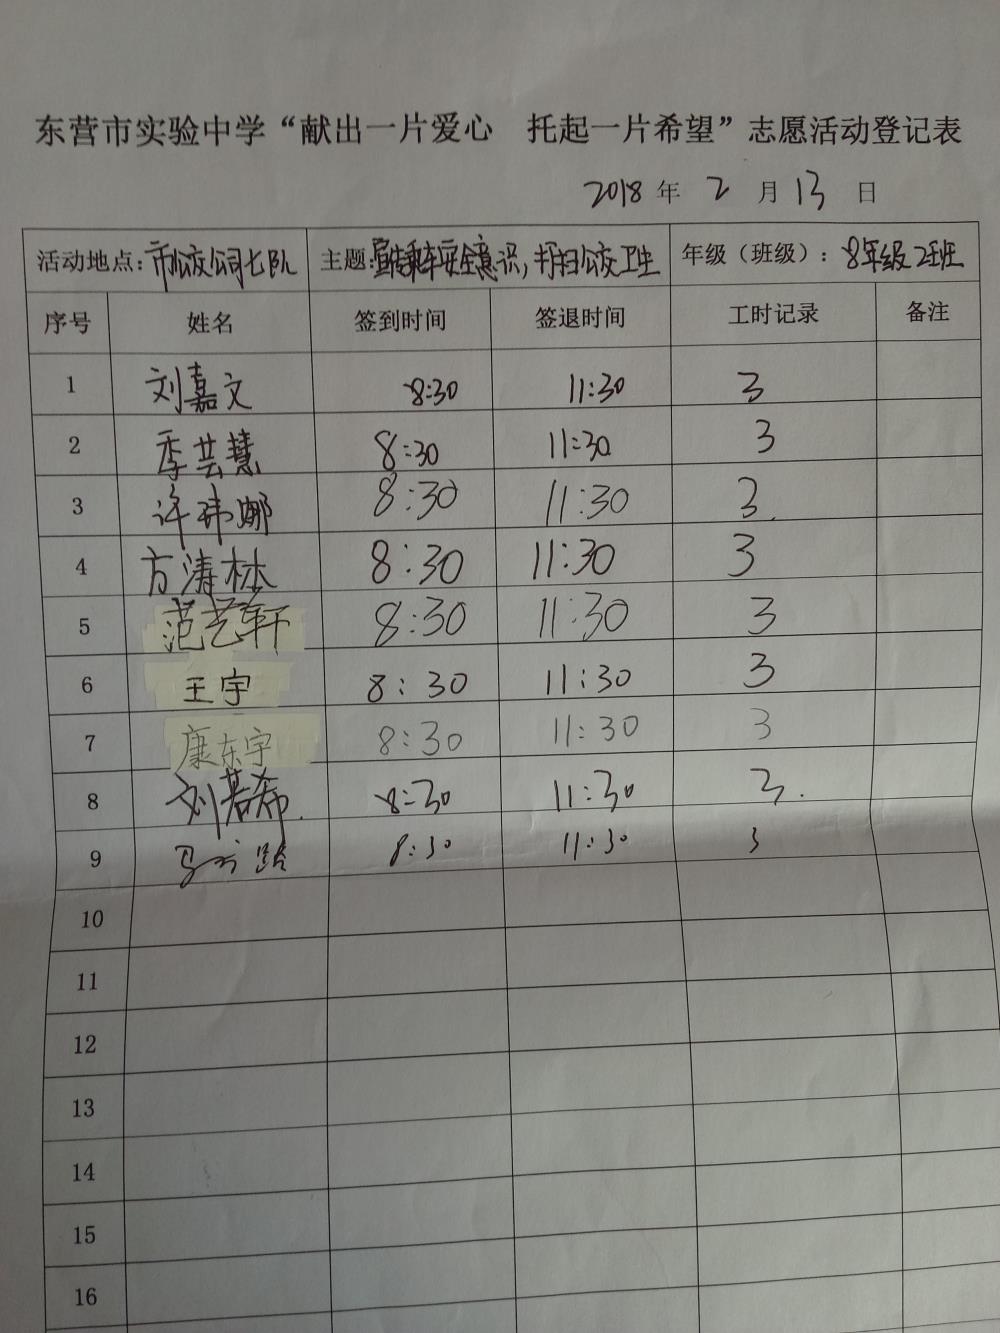 东营市实验中学“献出一片爱心 托起一片希望”志愿活动登记表
2018 年 2 月 13 日
活动地点：市公交公司七队 主题：宣传乘车安全意识，打扫公交卫生 年级（班级）：8年级2班
序号 姓名 签到时间 签退时间 工时记录 备注
1 刘嘉文 8:30 11:30 3
2 季芸慧 8:30 11:30 3
3 许玮娜 8:30 11:30 3
4 方涛林 8:30 11:30 3
5 范艺轩 8:30 11:30 3
6 王宇 8:30 11:30 3
7 康东宇 8:30 11:30 3
8 刘若希 8:30 11:30 3
9 马 8:30 11:30 3
10
11
12
13
14
15
16